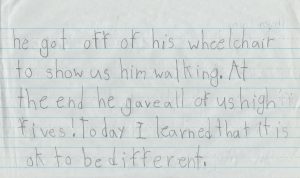 he got off of his wheelchair
to show us him walking. At
the end he gave all of us high
fives! Today I learned that it is
ok to be different.